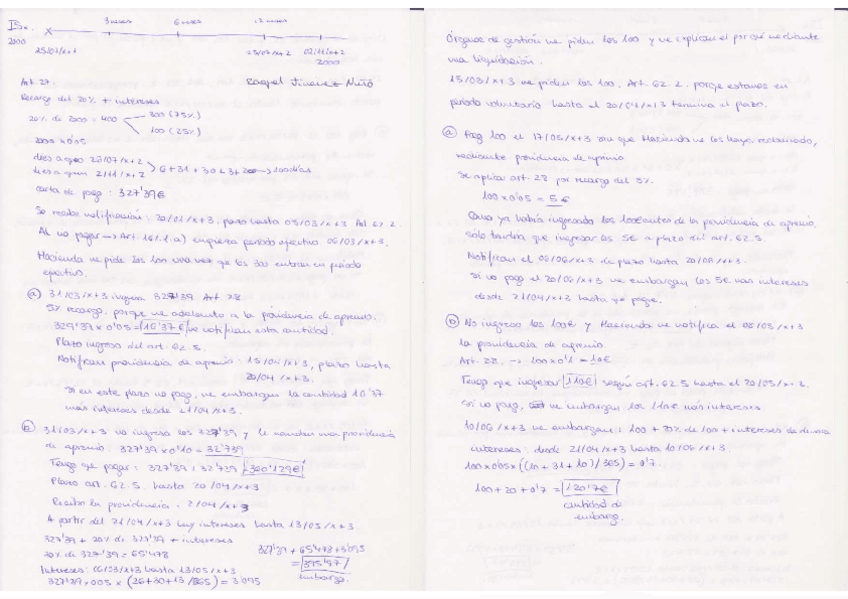 ISx. 3 meses 6 meses 12 meses
2000 25/07/x+1 25/07/x+2 02/11/x+2
2000
Art. 27.
Recargo del 20% + intereses
20% de 2000 = 400 300 (75%)
100 (25%)
2000 x 0'05
desde 25/07/x+2
2/11/x+2 6+31+30+31+2 → 100 días
carta de pago: 327'39€
Se recibe notificación: 20/01/x+3, plazo hasta 05/03/x+3. Art. 62.2.
Al no pagar → Art. 161.1.a) empieza periodo ejecutivo 06/03/x+3.
Hacienda me pide los 100 una vez que los 300 entran en periodo
ejecutivo.
a) 31/03/x+3 ingresa 327'39. Art. 28
5% recargo, porque me adelanto a la providencia de apremio.
327'39 x 0'05 = 16'37€ me notifican esta cantidad.
Plazo ingreso del art. 62.5.
Notifican providencia de apremio: 15/04/x+3, plazo hasta
20/04/x+3.
Si en este plazo no pago, me embargan la cantidad 16'37
más intereses desde 21/04/x+3.
b) 31/03/x+3 no ingresa los 327'39 y le mandan una providencia
de apremio: 327'39 x 0'10 = 32'739
Tengo que pagar: 327'39 + 32'739 = 360'129€
Plazo art. 62.5. hasta 20/04/x+3
Recibo la providencia: 2/04/x+3
A partir del 21/04/x+3 hay intereses hasta 13/05/x+3.
327'39 + 20% de 327'39 + intereses
20% de 327'39 = 65'478
327'39 + 65'478 + 3'095
= 395'97
embargo.
Intereses: 06/03/x+3 hasta 13/05/x+3
327'39 x 0'05 x (26+30+13/365) = 3'095
Órganos de gestión me piden los 100 y me explican el por qué mediante
una liquidación.
15/03/x+3 me piden los 100. Art. 62.2. porque estamos en
periodo voluntario hasta el 20/04/x+3 termina el plazo.
a) Pago 100 el 17/05/x+3 sin que Hacienda me los haya reclamado,
mediante providencia de apremio
Se aplica art. 28 por recargo del 5%.
100 x 0'05 = 5€
Como ya había ingresado los 100€ antes de la providencia de apremio,
sólo tendría que ingresar los 5€ a plazo del art. 62.5.
Notifican el 06/06/x+3 de plazo hasta 20/06/x+3.
Si no pago el 20/06/x+3 me embargan los 5€ más intereses
desde 21/04/x+3 hasta que pague.
b) No ingreso los 100€ y Hacienda me notifica el 08/05/x+3
la providencia de apremio.
Art. 28. → 100 x 0'1 = 10€
Tengo que ingresar 110€ según art. 62.5 hasta el 20/05/x+3.
Si no pago, me embargan los 110€ más intereses.
10/06/x+3 me embargan: 100 + 20% de 100 + intereses de demora
intereses: desde 21/04/x+3 hasta 10/06/x+3.
100 x 0'05 x ((10+31+10)/365) = 0'7
100 + 20 + 0'7 = 120'7€
cantidad de
embargo.